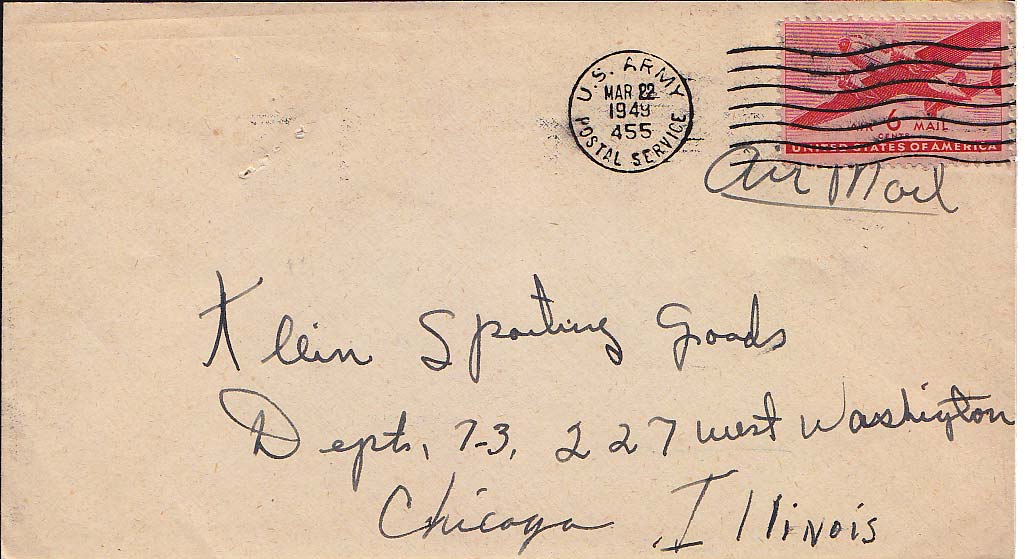 U.S. ARMY
MAR 22
1949
455
POSTAL SERVICE
AIR 6 MAIL
CENTS
UNITED STATES OF AMERICA
Air Mail
Klein Sporting Goods
Depts, 7-3, 227 west Washington
Chicago, Illinois